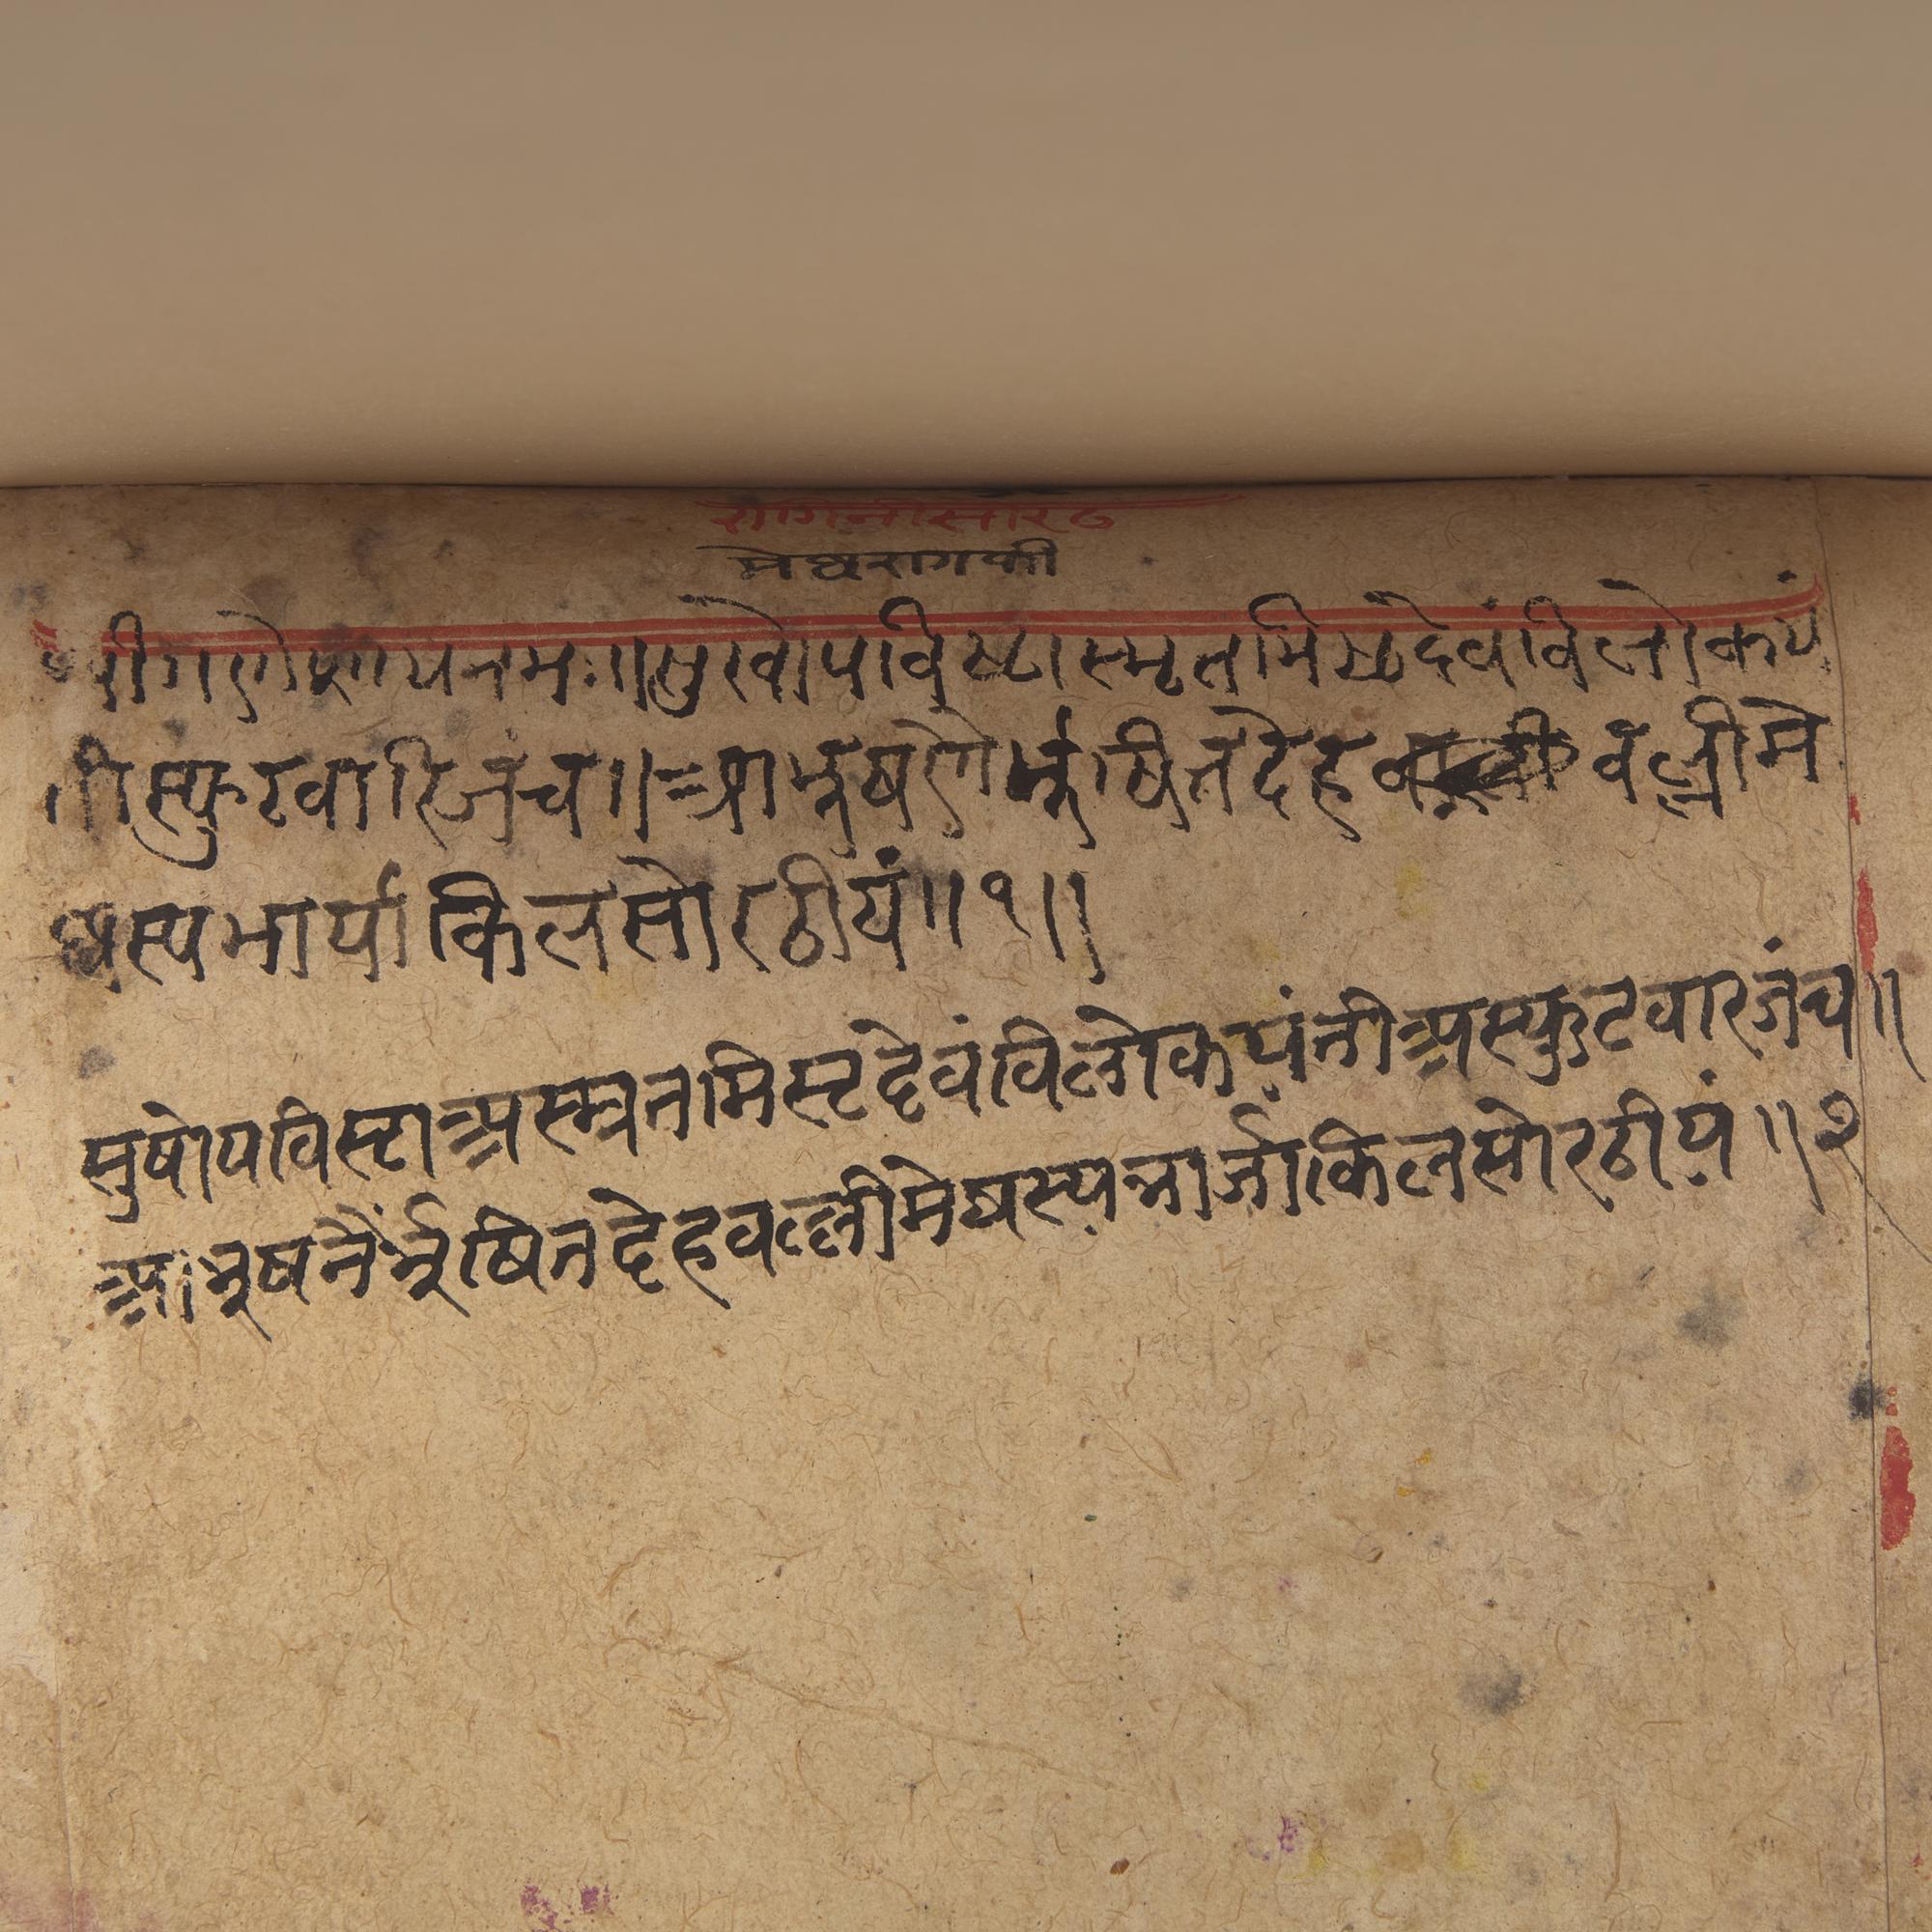 रागिनीसोरठ
मेघरागकी
श्रीगणेशायनमः॥सुखोपविष्टास्मृतमिष्टदेवंविलोकयं
तीस्फुटवारिजंच॥आभूषणेर्भूषितदेहवल्लीमे
घस्यभार्याकिलसोरठीयं॥१॥
सुषोपविस्टाअस्मृतमिस्टदेवंविलोकयंतीअस्फुटवारजंच॥
आभूषनैर्भूषितदेहवल्लीमेघस्यभार्जाकिलसोरठीयं॥२